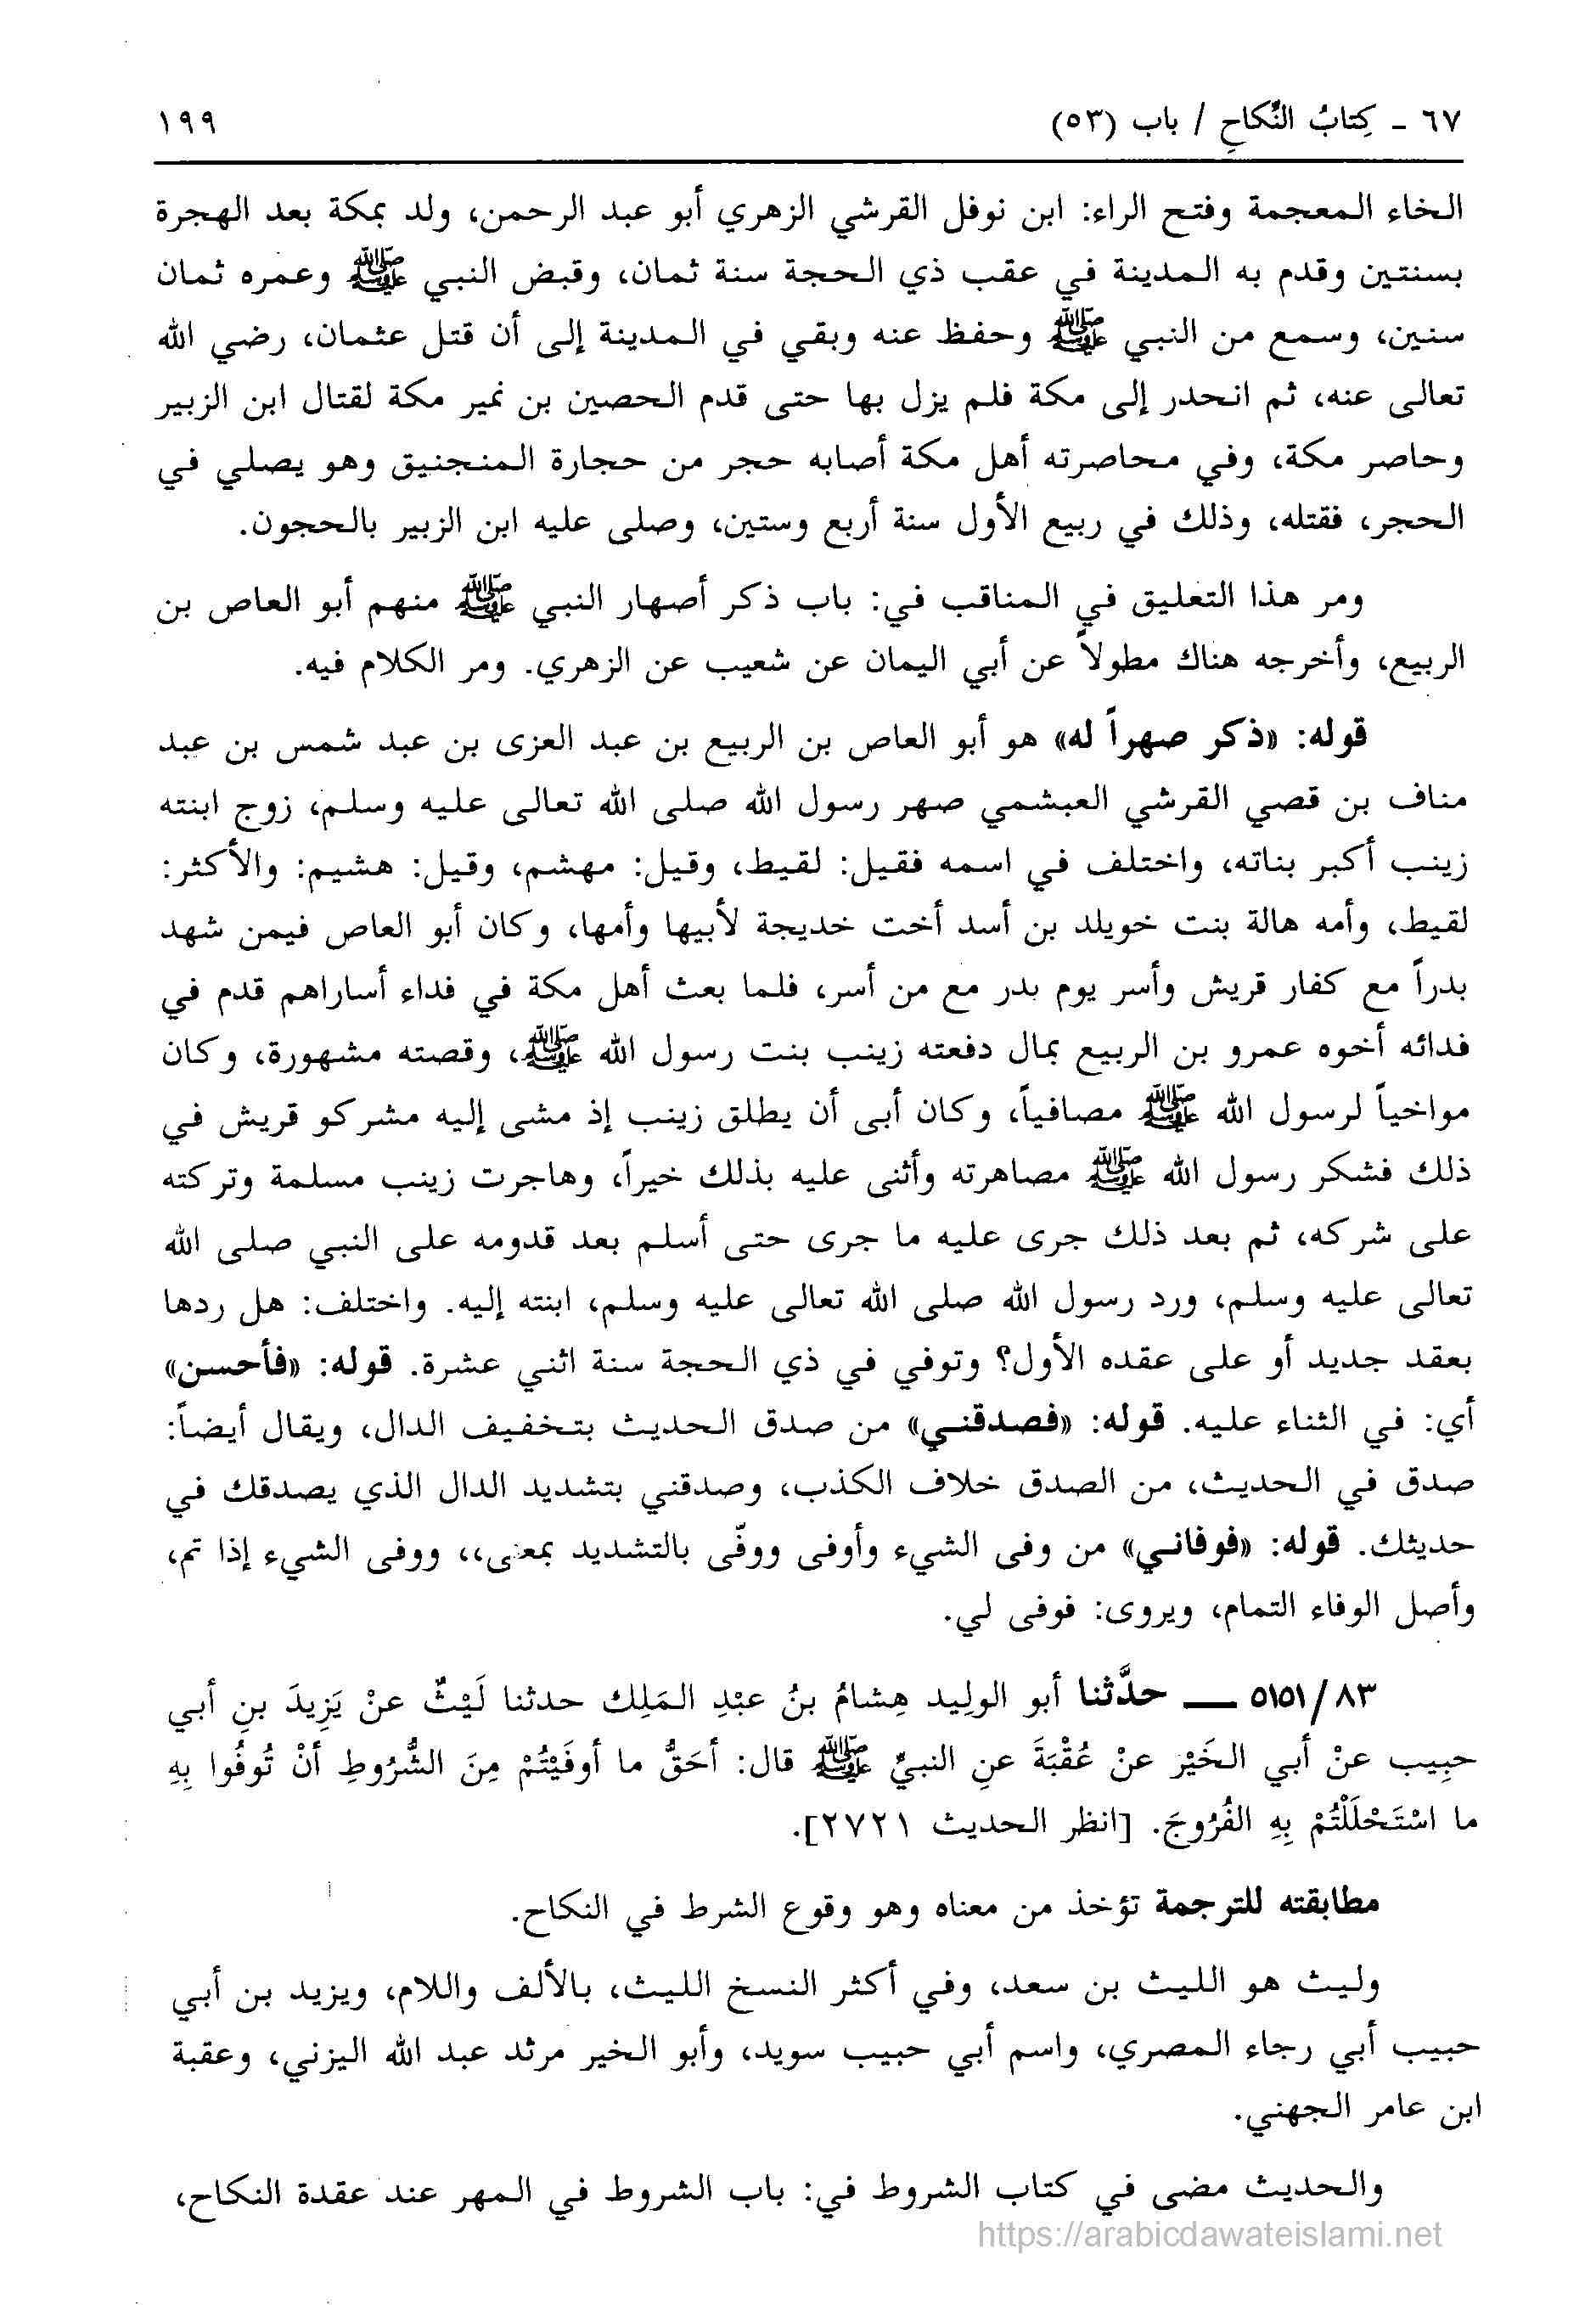 ٦٧ - كِتابُ النِّكاحِ / باب (٥٣) ١٩٩
الخاء المعجمة وفتح الراء: ابن نوفل القرشي الزهري أبو عبد الرحمن، ولد بمكة بعد الهجرة
بسنتين وقدم به المدينة في عقب ذي الحجة سنة ثمان، وقبض النبي ﷺ وعمره ثمان
سنين، وسمع من النبي ﷺ وحفظ عنه وبقي في المدينة إلى أن قتل عثمان، رضي الله
تعالى عنه، ثم انحدر إلى مكة فلم يزل بها حتى قدم الحصين بن نمير مكة لقتال ابن الزبير
وحاصر مكة، وفي محاصرته أهل مكة أصابه حجر من حجارة المنجنيق وهو يصلي في
الحجر، فقتله، وذلك في ربيع الأول سنة أربع وستين، وصلى عليه ابن الزبير بالحجون.
ومر هذا التعليق في المناقب في: باب ذكر أصهار النبي ﷺ منهم أبو العاص بن
الربيع، وأخرجه هناك مطولاً عن أبي اليمان عن شعيب عن الزهري. ومر الكلام فيه.
قوله: «ذكر صهراً له» هو أبو العاص بن الربيع بن عبد العزى بن عبد شمس بن عبد
مناف بن قصي القرشي العبشمي صهر رسول الله صلى الله تعالى عليه وسلم، زوج ابنته
زينب أكبر بناته، واختلف في اسمه فقيل: لقيط، وقيل: مهشم، وقيل: هشيم: والأكثر:
لقيط، وأمه هالة بنت خويلد بن أسد أخت خديجة لأبيها وأمها، وكان أبو العاص فيمن شهد
بدراً مع كفار قريش وأسر يوم بدر مع من أسر، فلما بعث أهل مكة في فداء أساراهم قدم في
فدائه أخوه عمرو بن الربيع بمال دفعته زينب بنت رسول الله ﷺ، وقصته مشهورة، وكان
مواخياً لرسول الله ﷺ مصافياً، وكان أبى أن يطلق زينب إذ مشى إليه مشركو قريش في
ذلك فشكر رسول الله ﷺ مصاهرته وأثنى عليه بذلك خيراً، وهاجرت زينب مسلمة وتركته
على شركه، ثم بعد ذلك جرى عليه ما جرى حتى أسلم بعد قدومه على النبي صلى الله
تعالى عليه وسلم، ورد رسول الله صلى الله تعالى عليه وسلم، ابنته إليه. واختلف: هل ردها
بعقد جديد أو على عقده الأول؟ وتوفي في ذي الحجة سنة اثني عشرة. قوله: «فأحسن»
أي: في الثناء عليه. قوله: «فصدقني» من صدق الحديث بتخفيف الدال، ويقال أيضاً:
صدق في الحديث، من الصدق خلاف الكذب، وصدقني بتشديد الدال الذي يصدقك في
حديثك. قوله: «فوفاني» من وفى الشيء وأوفى ووفّى بالتشديد بمعنى،، ووفى الشيء إذا تم،
وأصل الوفاء التمام، ويروى: فوفى لي.
٥١٥١/٨٣ — حدَّثنا أبو الولِيد هِشامُ بنُ عبْدِ المَلِك حدثنا لَيْثٌ عنْ يَزِيدَ بنِ أبي
حبِيب عنْ أبي الخَيْر عنْ عُقْبَةَ عنِ النبيِّ ﷺ قال: أحَقُّ ما أوفَيْتُمْ مِنَ الشُّرُوطِ أنْ تُوفُوا بِهِ
ما اسْتَحْلَلْتُمْ بِهِ الفُرُوجَ. [انظر الحديث ٢٧٢١].
مطابقته للترجمة تؤخذ من معناه وهو وقوع الشرط في النكاح.
وليث هو الليث بن سعد، وفي أكثر النسخ الليث، بالألف واللام، ويزيد بن أبي
حبيب أبي رجاء المصري، واسم أبي حبيب سويد، وأبو الخير مرثد عبد الله اليزني، وعقبة
ابن عامر الجهني.
والحديث مضى في كتاب الشروط في: باب الشروط في المهر عند عقدة النكاح،
https://arabicdawateislami.net